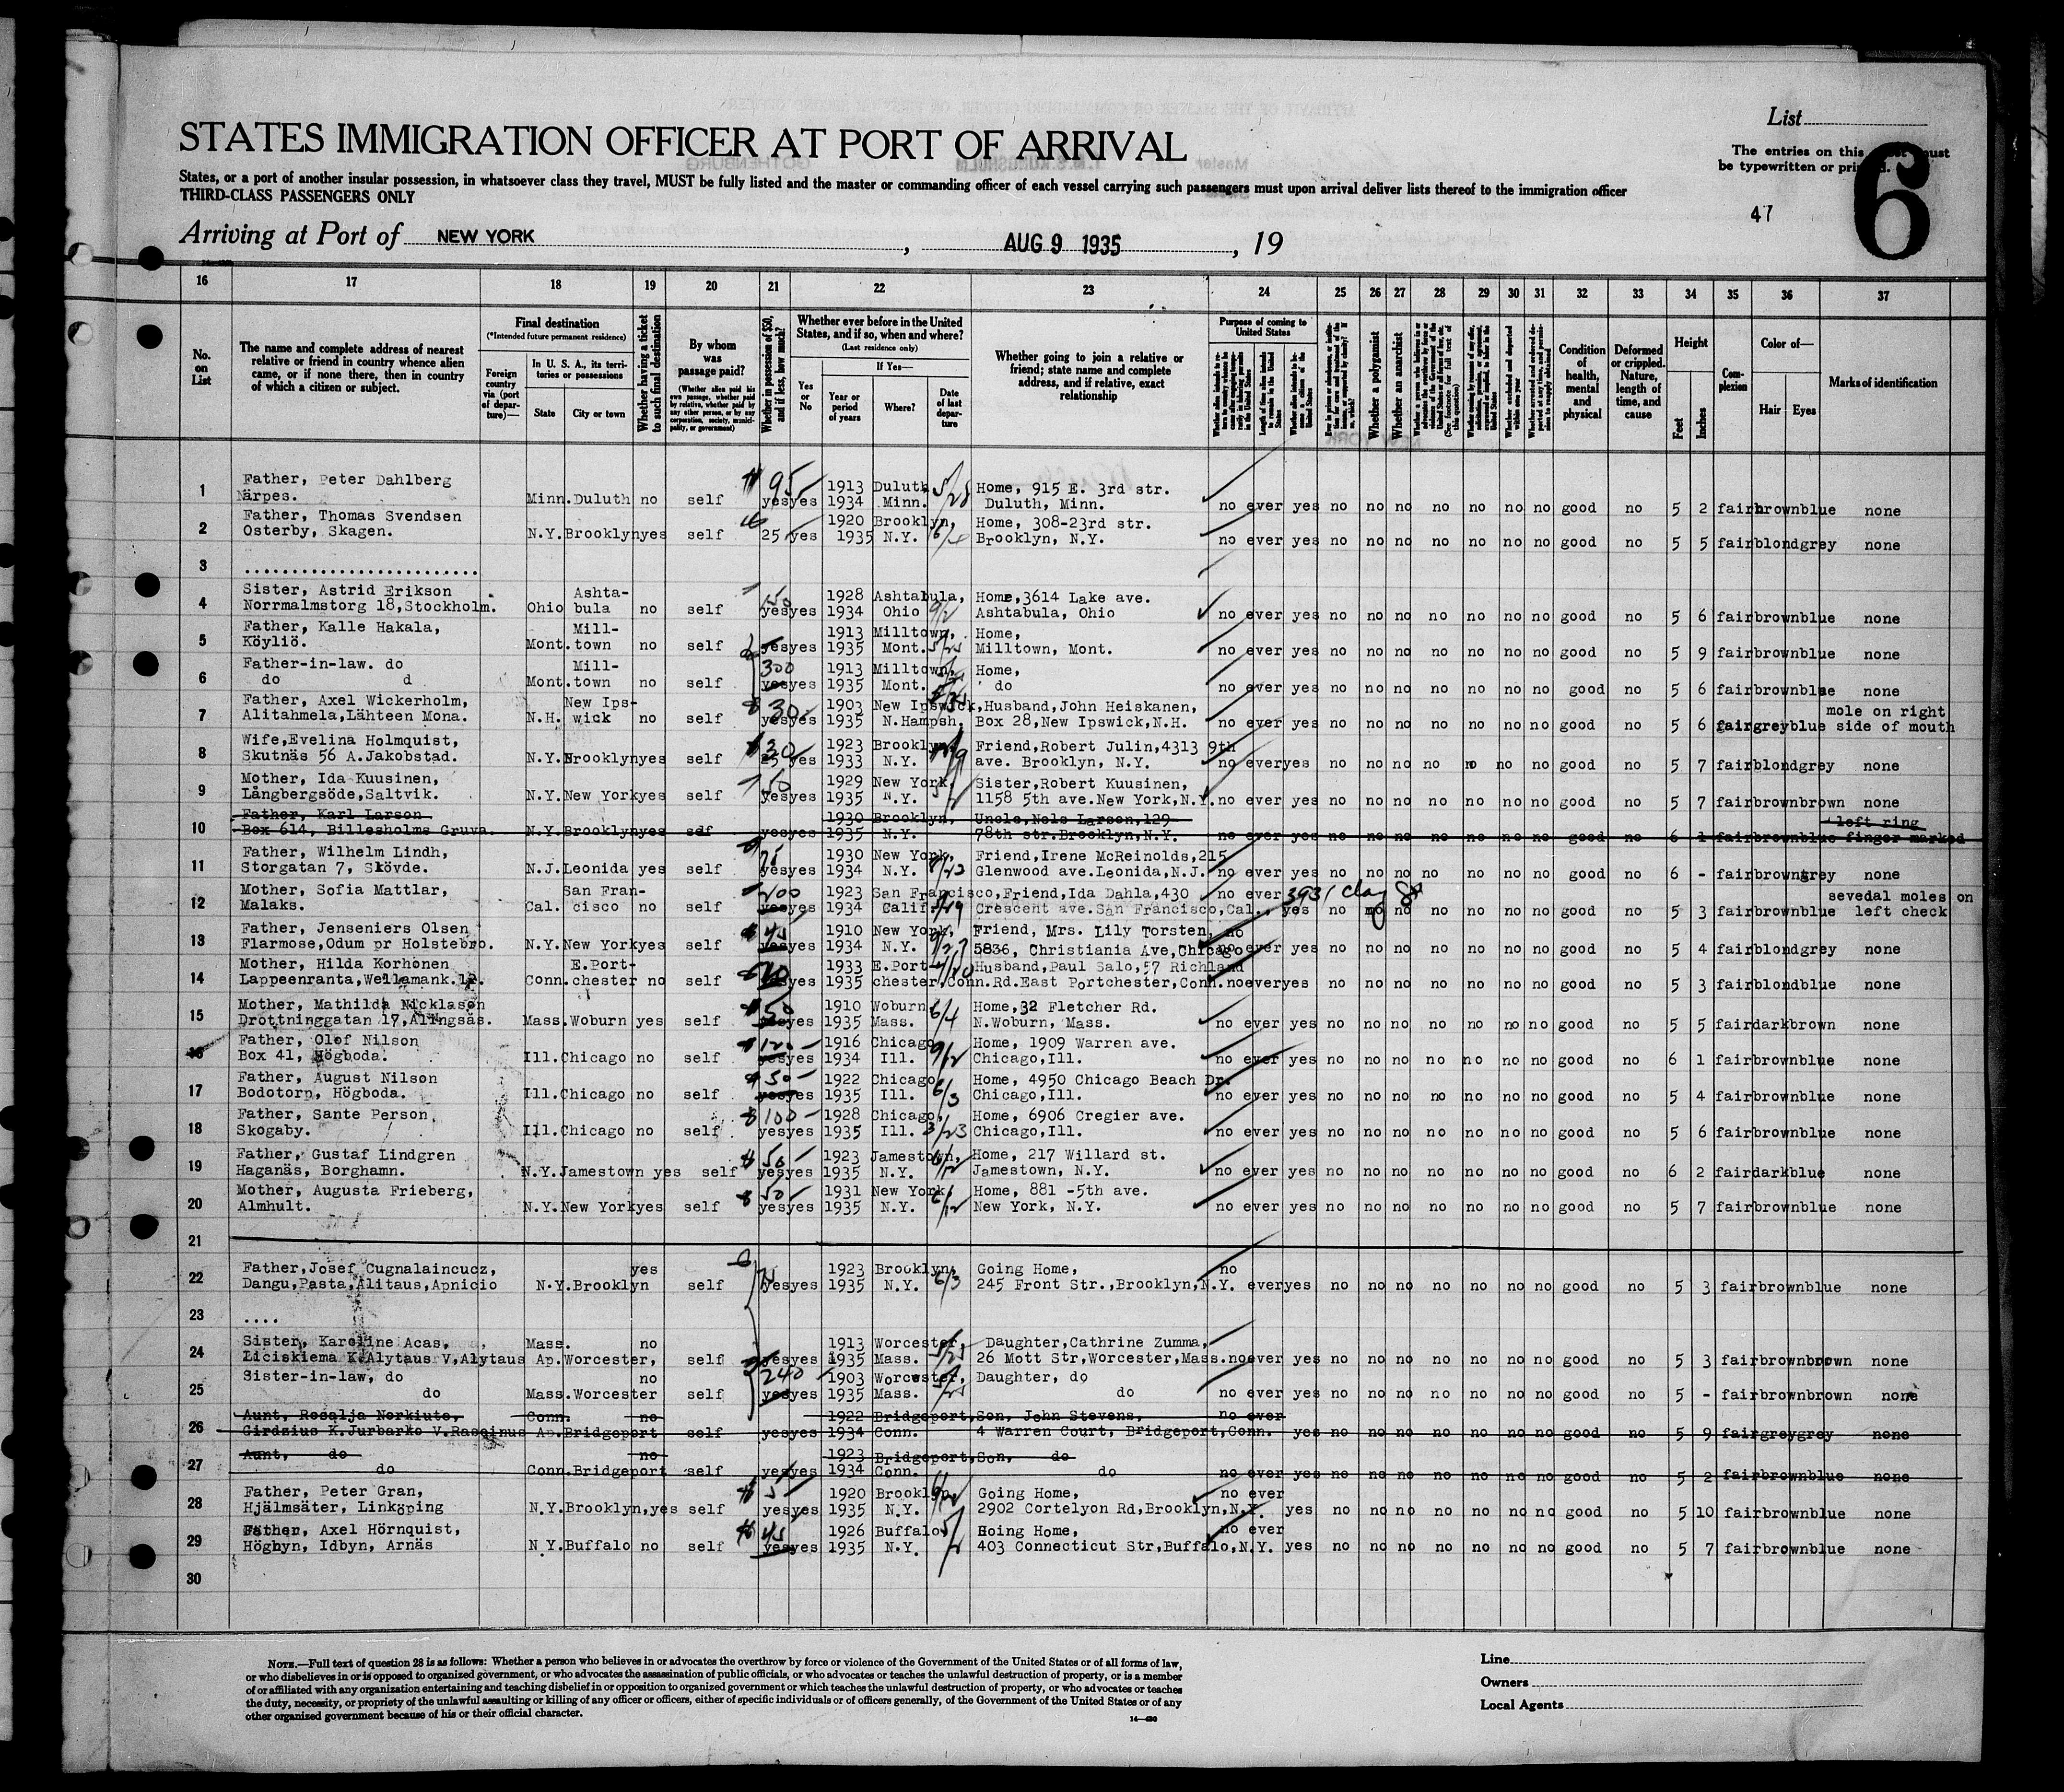 List
STATES IMMIGRATION OFFICER AT PORT OF ARRIVAL
The entries on this must
be typewritten or
6
States, or a port of another insular possession, in whatsoever class they travel, MUST be fully listed and the master or commanding officer of each vessel carrying such passengers must upon arrival deliver lists thereof to the immigration officer
THIRD-CLASS PASSENGERS ONLY
47
Arriving at Port of NEW YORK, AUG 9 1935, 19
16 17 18 19 20 21 22 23 24 25 26 27 28 29 30 31 32 33 34 35 36 37
No. on List
The name and complete address of nearest relative or friend in country whence alien came, or if none there, then in country of which a citizen or subject.
Final destination
(*Intended future permanent residence)
Foreign country via (port of departure)—
In U. S. A., its territories or possessions
State City or town
Whether having a ticket to such final destination
By whom was passage paid?
(Whether alien paid his own passage, whether paid by relative, whether paid by any other person, or by any corporation, society, municipality, or government)
Whether in possession of $50, and if less, how much?
Whether ever before in the United States, and if so, when and where?
(Last residence only)
Yes or No
If Yes—
Year or period of years Where? Date of last departure
Whether going to join a relative or friend; state name and complete address, and if relative, exact relationship
Purpose of coming to United States
Whether a polygamist
Whether an anarchist
Condition of health, mental and physical
Deformed or crippled. Nature, length of time, and cause
Height
Feet Inches
Complexion
Color of—
Hair Eyes
Marks of identification
Father, Peter Dahlberg 95 1913 Duluth 5/28 Home, 915 E. 3rd str.
1 Närpes. Minn. Duluth no self yes yes 1934 Minn. Duluth, Minn. no ever yes no no no no no no no good no 5 2 fair brown blue none
Father, Thomas Svendsen 1920 Brooklyn, Home, 308-23rd str.
2 Osterby, Skagen. N.Y. Brooklyn yes self 25 yes 1935 N.Y. Brooklyn, N.Y. no ever yes no no no no no no no good no 5 5 fair blond grey none
3 ..........................
Sister, Astrid Erikson Ashta- 50 1928 Ashtabula, Home, 3614 Lake ave.
4 Norrmalmstorg 18, Stockholm. Ohio bula no self yes yes 1934 Ohio Ashtabula, Ohio no ever yes no no no no no no no good no 5 6 fair brown blue none
Father, Kalle Hakala, Mill- 1913 Milltown, Home,
5 Köyliö. Mont. town no self yes yes 1935 Mont. Milltown, Mont. no ever yes no no no no no no no good no 5 9 fair brown blue none
Father-in-law. do Mill- 300 1913 Milltown, Home,
6 do d Mont. town no self yes yes 1935 Mont. do no ever yes no no no no no no no good no 5 6 fair brown blae none
Father, Axel Wickerholm, New Ips- 30 1903 New Ipswick, Husband, John Heiskanen, mole on right
7 Alitahmela, Lähteen Mona. N.H. wick no self yes yes 1935 N.Hampsh. Box 28, New Ipswick, N.H. no ever yes no no no no no no no good no 5 6 fair grey blue side of mouth
Wife, Evelina Holmquist, 30 1923 Brooklyn Friend, Robert Julin, 4313 9th
8 Skutnäs 56 A. Jakobstad. N.Y. Brooklyn yes self 25 yes 1933 N.Y. ave. Brooklyn, N.Y. no ever yes no no no no no no no good no 5 7 fair blond grey none
Mother, Ida Kuusinen, 50 1929 New York, Sister, Robert Kuusinen,
9 Långbergsöde, Saltvik. N.Y. New York yes self yes yes 1935 N.Y. 1158 5th ave. New York, N.Y. no ever yes no no no no no no no good no 5 7 fair brown brown none
Father, Karl Larson 1930 Brooklyn, Uncle, Nels Larson, 129 left ring
10 Box 614, Billesholms Gruva. N.Y. Brooklyn yes sdf yes yes 1935 N.Y. 78th str. Brooklyn, N.Y. no ever yes no no no no no no no good no 6 1 fair brown blue finger marked
Father, Wilhelm Lindh, 1930 New York, Friend, Irene McReinolds, 215
11 Storgatan 7, Skövde. N.J. Leonida yes self yes yes 1934 N.Y. Glenwood ave. Leonida, N.J. no ever yes no no no no no no no good no 6 - fair brown grey none
Mother, Sofia Mattlar, San Fran- 200 1923 San Francisco, Friend, Ida Dahla, 430 no ever 3931 Clay St sevedal moles on
12 Malaks. Cal. cisco no self yes yes 1934 Calif. Crescent ave. San Francisco, Cal. yes no no no no no no no good no 5 3 fair brown blue left check
Father, Jenseniers Olsen 45 1910 New York, Friend, Mrs. Lily Torsten, no
13 Flarmose, Odum pr Holstebro. N.Y. New York yes self yes yes 1934 N.Y. 9/27 5836, Christiania Ave, Chicago no ever yes no no no no no no no good no 5 4 fair blond grey none
Mother, Hilda Korhonen E.Port- 1933 E.Port- Husband, Paul Salo, 57 Richland
14 Lappeenranta, Wellamank. 12. Conn. chester no self yes 1935 chester, Conn. Rd. East Portchester, Conn. no ever yes no no no no no no no good no 5 3 fair blond blue none
Mother, Mathilda Nicklason 50 1910 Woburn 6/4 Home, 32 Fletcher Rd.
15 Drottninggatan 17, Alingsås. Mass. Woburn yes self yes 1935 Mass. N.Woburn, Mass. no ever yes no no no no no no no good no 5 5 fair dark brown none
Father, Olof Nilson 120 1916 Chicago 9/12 Home, 1909 Warren ave.
16 Box 41, Högboda. Ill. Chicago no self yes yes 1934 Ill. Chicago, Ill. no ever yes no no no no no no no good no 6 1 fair brown blue none
Father, August Nilson 50 1922 Chicago 6/3 Home, 4950 Chicago Beach Dr.
17 Bodotorp, Högboda. Ill. Chicago no self yes yes 1935 Ill. Chicago, Ill. no ever yes no no no no no no no good no 5 4 fair brown blue none
Father, Sante Person 100 1928 Chicago, Home, 6906 Cregier ave.
18 Skogaby. Ill. Chicago no self yes yes 1935 Ill. 3/23 Chicago, Ill. no ever yes no no no no no no no good no 5 6 fair brown blue none
Father, Gustaf Lindgren 50 1923 Jamestown, Home, 217 Willard st.
19 Haganäs, Borghamn. N.Y. Jamestown yes self yes yes 1935 N.Y. Jamestown, N.Y. no ever yes no no no no no no no good no 6 2 fair dark blue none
Mother, Augusta Frieberg, 50 1931 New York, Home, 881 -5th ave.
20 Almhult. N.Y. New York yes self yes yes 1935 N.Y. 6/12 New York, N.Y. no ever yes no no no no no no no good no 5 7 fair brown blue none
21
Father, Josef Cugnalaincucz, yes 1923 Brooklyn, Going Home, no
22 Dangu, Pasta, Alitaus, Apnicio N.Y. Brooklyn self yes yes 1935 N.Y. 6/3 245 Front Str., Brooklyn, N.Y. ever yes no no no no no no no good no 5 3 fair brown blue none
23 ....
Sister, Karoline Acas, Mass. no 1913 Worcester, Daughter, Cathrine Zumma,
24 Liciskiema K. Alytaus V, Alytaus Ap. Worcester, self yes yes 1935 Mass. 26 Mott Str, Worcester, Mass. no ever yes no no no no no no no good no 5 3 fair brown brown none
Sister-in-law, do no 240 1903 Worcester, Daughter, do
25 do Mass. Worcester self yes yes 1935 Mass. do no ever yes no no no no no no no good no 5 - fair brown brown none
Aunt, Rosalja Norkiute, Conn. no 1922 Bridgeport, Son, John Stevens, no ever
26 Girdzius K. Jurbarko V. Raseinus Ap. Bridgeport self yes yes 1934 Conn. 4 Warren Court, Bridgeport, Conn. yes no no no no no no no good no 5 9 fair grey grey none
Aunt, do no 1923 Bridgeport, Son, do
27 do Conn. Bridgeport self yes yes 1934 Conn. do no ever yes no no no no no no no good no 5 2 fair brown blue none
Father, Peter Gran, 1920 Brooklyn, Going Home, no ever
28 Hjälmsäter, Linköping N.Y. Brooklyn, yes self yes yes 1935 N.Y. 2902 Cortelyon Rd, Brooklyn, N.Y. yes no no no no no no no good no 5 10 fair brown blue none
Father, Axel Hörnquist, 45 1926 Buffalo Going Home, no ever
29 Högbyn, Idbyn, Arnäs N.Y. Buffalo no self yes yes 1935 N.Y. 403 Connecticut Str, Buffalo, N.Y. yes no no no no no no no good no 5 7 fair brown blue none
30
NOTE.—Full text of question 28 is as follows: Whether a person who believes in or advocates the overthrow by force or violence of the Government of the United States or of all forms of law,
or who disbelieves in or is opposed to organized government, or who advocates the assassination of public officials, or who advocates or teaches the unlawful destruction of property, or is a member
of or affiliated with any organization entertaining and teaching disbelief in or opposition to organized government or which teaches the unlawful destruction of property, or who advocates or teaches
the duty, necessity, or propriety of the unlawful assaulting or killing of any officer or officers, either of specific individuals or of officers generally, of the Government of the United States or of any
other organized government because of his or their official character.
14—430
Line
Owners
Local Agents